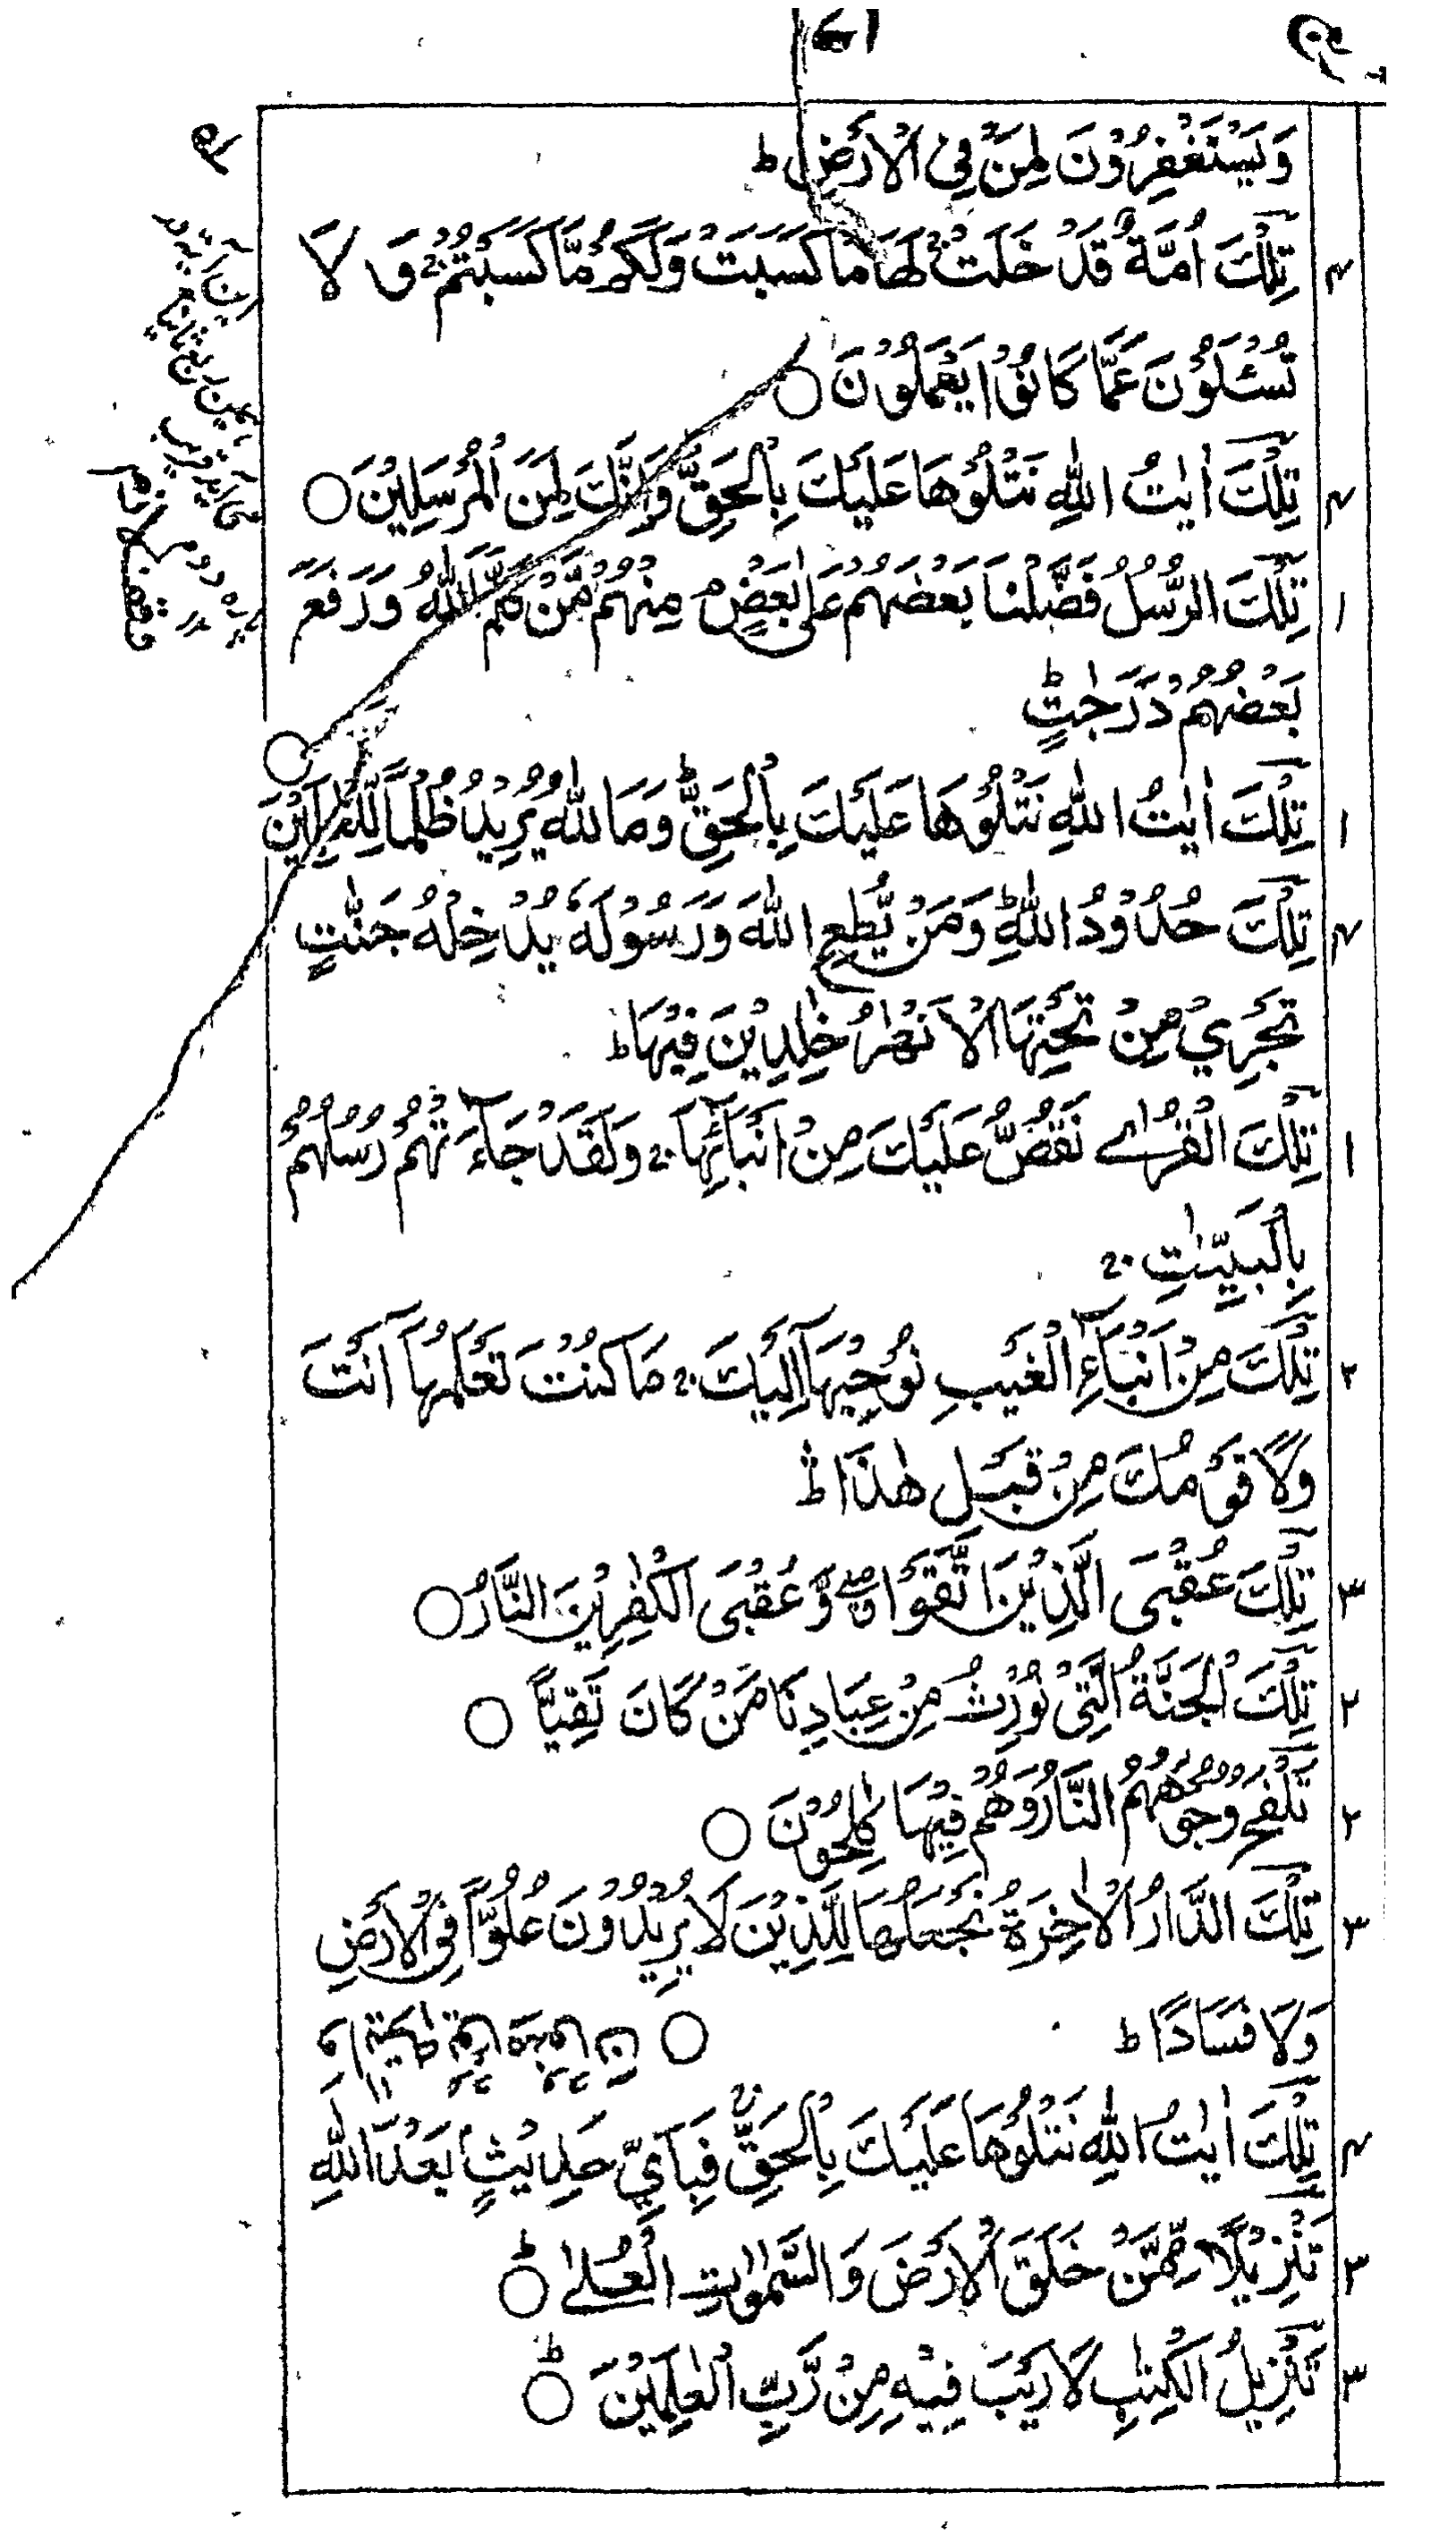 وَيَسْتَغْفِرُوْنَ لِمَنْ فِي الْاَرْضِ ط
تِلْكَ اُمَّةٌ قَدْ خَلَتْ ج لَهَا مَا كَسَبَتْ وَلَكُمْ مَّا كَسَبْتُمْ ج وَ لَا ٢
تُسْـَٔلُوْنَ عَمَّا كَانُوْا يَعْمَلُوْنَ ○
تِلْكَ اٰيٰتُ اللّٰهِ نَتْلُوْهَا عَلَيْكَ بِالْحَقِّ وَاِنَّكَ لَمِنَ الْمُرْسَلِيْنَ ○ ٢
تِلْكَ الرُّسُلُ فَضَّلْنَا بَعْضَهُمْ عَلٰى بَعْضٍ م مِنْهُمْ مَّنْ كَلَّمَ اللّٰهُ وَرَفَعَ ١
بَعْضَهُمْ دَرَجٰتٍ ط
تِلْكَ اٰيٰتُ اللّٰهِ نَتْلُوْهَا عَلَيْكَ بِالْحَقِّ ط وَمَا اللّٰهُ يُرِيْدُ ظُلْمًا لِّلْعٰلَمِيْنَ ○ ١
تِلْكَ حُدُوْدُ اللّٰهِ ط وَمَنْ يُّطِعِ اللّٰهَ وَرَسُوْلَهٗ يُدْخِلْهُ جَنّٰتٍ ٢
تَجْرِيْ مِنْ تَحْتِهَا الْاَنْهٰرُ خٰلِدِيْنَ فِيْهَا ط
تِلْكَ الْقُرٰى نَقُصُّ عَلَيْكَ مِنْ اَنْبَآئِهَا ج وَلَقَدْ جَآءَتْهُمْ رُسُلُهُمْ ١
بِالْبَيِّنٰتِ ج
تِلْكَ مِنْ اَنْبَآءِ الْغَيْبِ نُوْحِيْهَآ اِلَيْكَ ج مَا كُنْتَ تَعْلَمُهَآ اَنْتَ ٢
وَلَا قَوْمُكَ مِنْ قَبْلِ هٰذَا ط
تِلْكَ عُقْبَى الَّذِيْنَ اتَّقَوْا ق صلے وَّعُقْبَى الْكٰفِرِيْنَ النَّارُ ○ ٣
تِلْكَ الْجَنَّةُ الَّتِيْ نُوْرِثُ مِنْ عِبَادِنَا مَنْ كَانَ تَقِيًّا ○ ٢
تَلْفَحُ وُجُوْهَهُمُ النَّارُ وَهُمْ فِيْهَا كٰلِحُوْنَ ○ ٢
تِلْكَ الدَّارُ الْاٰخِرَةُ نَجْعَلُهَا لِلَّذِيْنَ لَا يُرِيْدُوْنَ عُلُوًّا فِي الْاَرْضِ ٣
وَلَا فَسَادًا ط ○
تِلْكَ اٰيٰتُ اللّٰهِ نَتْلُوْهَا عَلَيْكَ بِالْحَقِّ ج فَبِاَيِّ حَدِيْثٍ م بَعْدَ اللّٰهِ ٢
تَنْزِيْلًا مِّمَّنْ خَلَقَ الْاَرْضَ وَالسَّمٰوٰتِ الْعُلٰى ○ ط ٣
تَنْزِيْلُ الْكِتٰبِ لَا رَيْبَ فِيْهِ مِنْ رَّبِّ الْعٰلَمِيْنَ ○ ط ٣